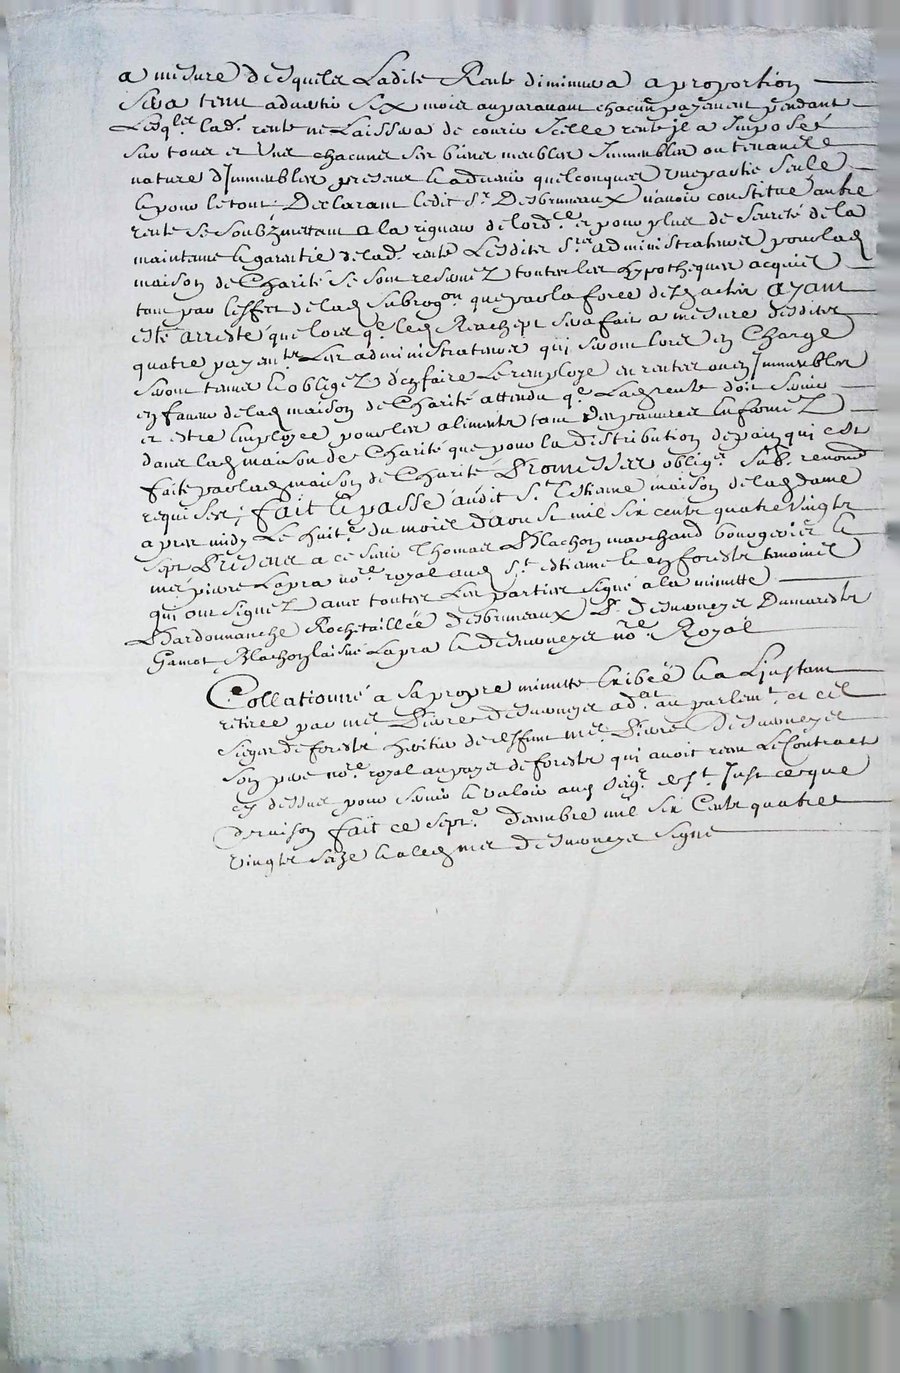 a mesure desqueles Ladite Rente diminuera a proportion
sera tenu advertir six mois auparavant chacun payement pendant
Lesq.les lad. rente ne Laissera de courir Icelle rente il a Imposéé
sur tous et Uns chacuns ses biens meubles Immeubles ou tenans
nature d'Immeubles presens & advenir quelconques Une partie seule
& pour le tout Declarant ledit Sr Desbruneaux n'avoir constitué autre
rente se soubzmettant a la rigueur de lord.ce et pour plus de seureté de la
maintenue & garentie de lad. rente Lesdits Srs administrateurs pour lad
maison de Charité se sont reservez toutes les hypotheques acquis
tant par l'effect de lad subrog.on que par la force de actes ayant
esté arresté que lors q.e led Reachept sera fait a mesure desdits
quatre payem.ts Les administrateurs qui seront lors en Charge
seront tenus & obligez d'en faire Le remploye en rentes ou en Immeubles
en faveur de lad maison de Charité attendu q.e Lad rente doit servir
et estre employee pour les aliments tant des pauvres enfermez
dans lad maison de Charité que pour la distribution de pain qui est
faite par lad maison de Charité Promesses oblig.s sub. renon.
requises; fait & passé audit St Estienne maison de lad dame
apres midy Le huit.e du mois d'Aoust mil six cents quatre vingts
sept Presens a ce sieur Thomas Blachon marchand bourgeois &
me pierre Lapra no.re royal aud St estienne le en forests temoins
qui ont signez avec toutes Les parties signé a la minutte
Chardonnanche Rochetaillée desbruneaux Desverneys Dumarests
Gamot Blachon laisné Lapra & desverneys no.re Royal
Collationné a sa propre minutte Exibée & a L'instant
retiree par me Pierre desverneys ad.at au parlem.t et
siege de forests heritier de deffunt me Pierre Desverneys
son pere no.re royal au pays de forests qui avoit receu Le Contract
cy dessus pour servir & valoir aud Seig.r Just ce que
de raison fait ce sept.e decembre mil six Cents quatre
vingts seize & a led me desverneys signé